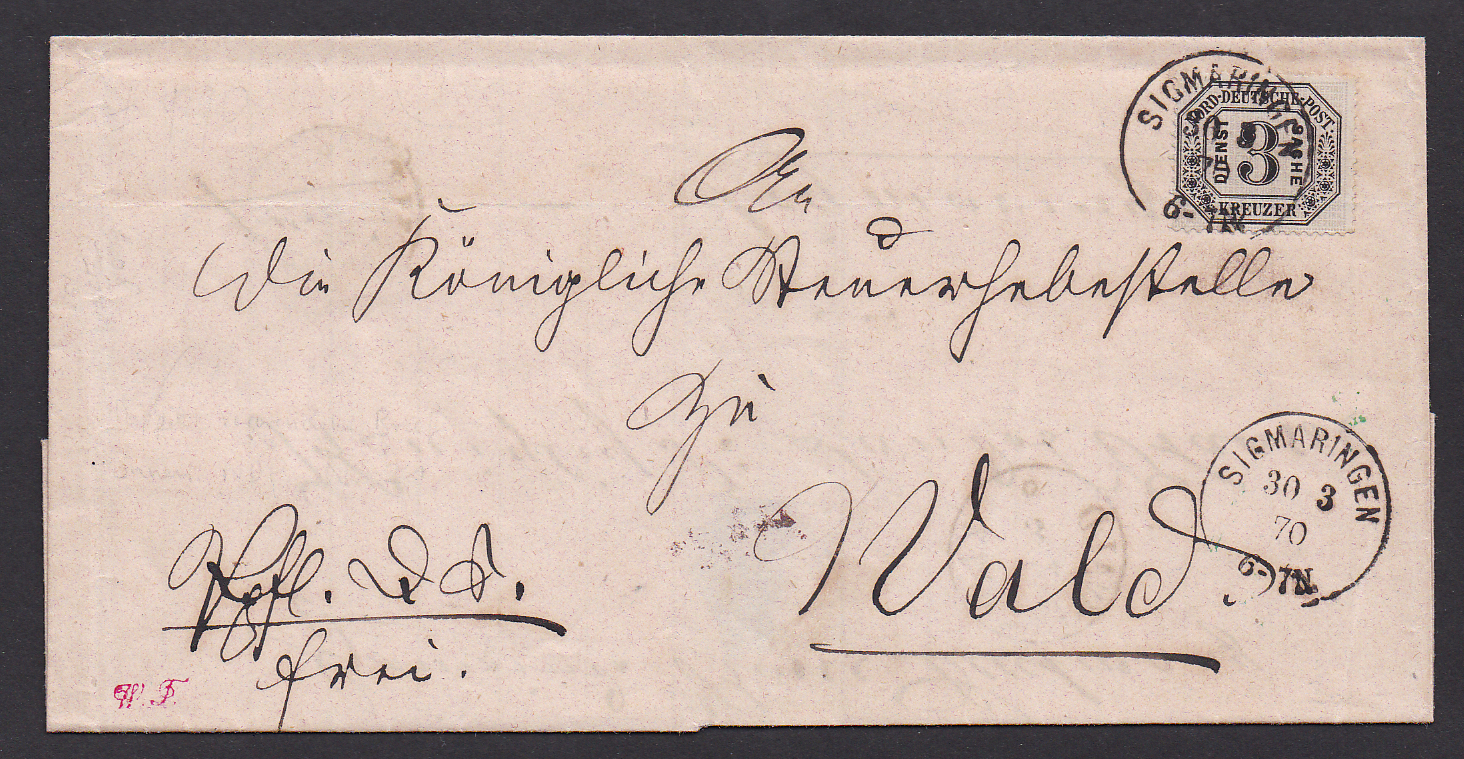 SIGMARINGEN
30 3
70
6-7N
NORD-DEUTSCHE-POST
DIENST SACHE
3
KREUZER
An
die Königliche Steuerhebestelle
zu
Wald.
SIGMARINGEN
30 3
70
6-7N
frei.
W. F.